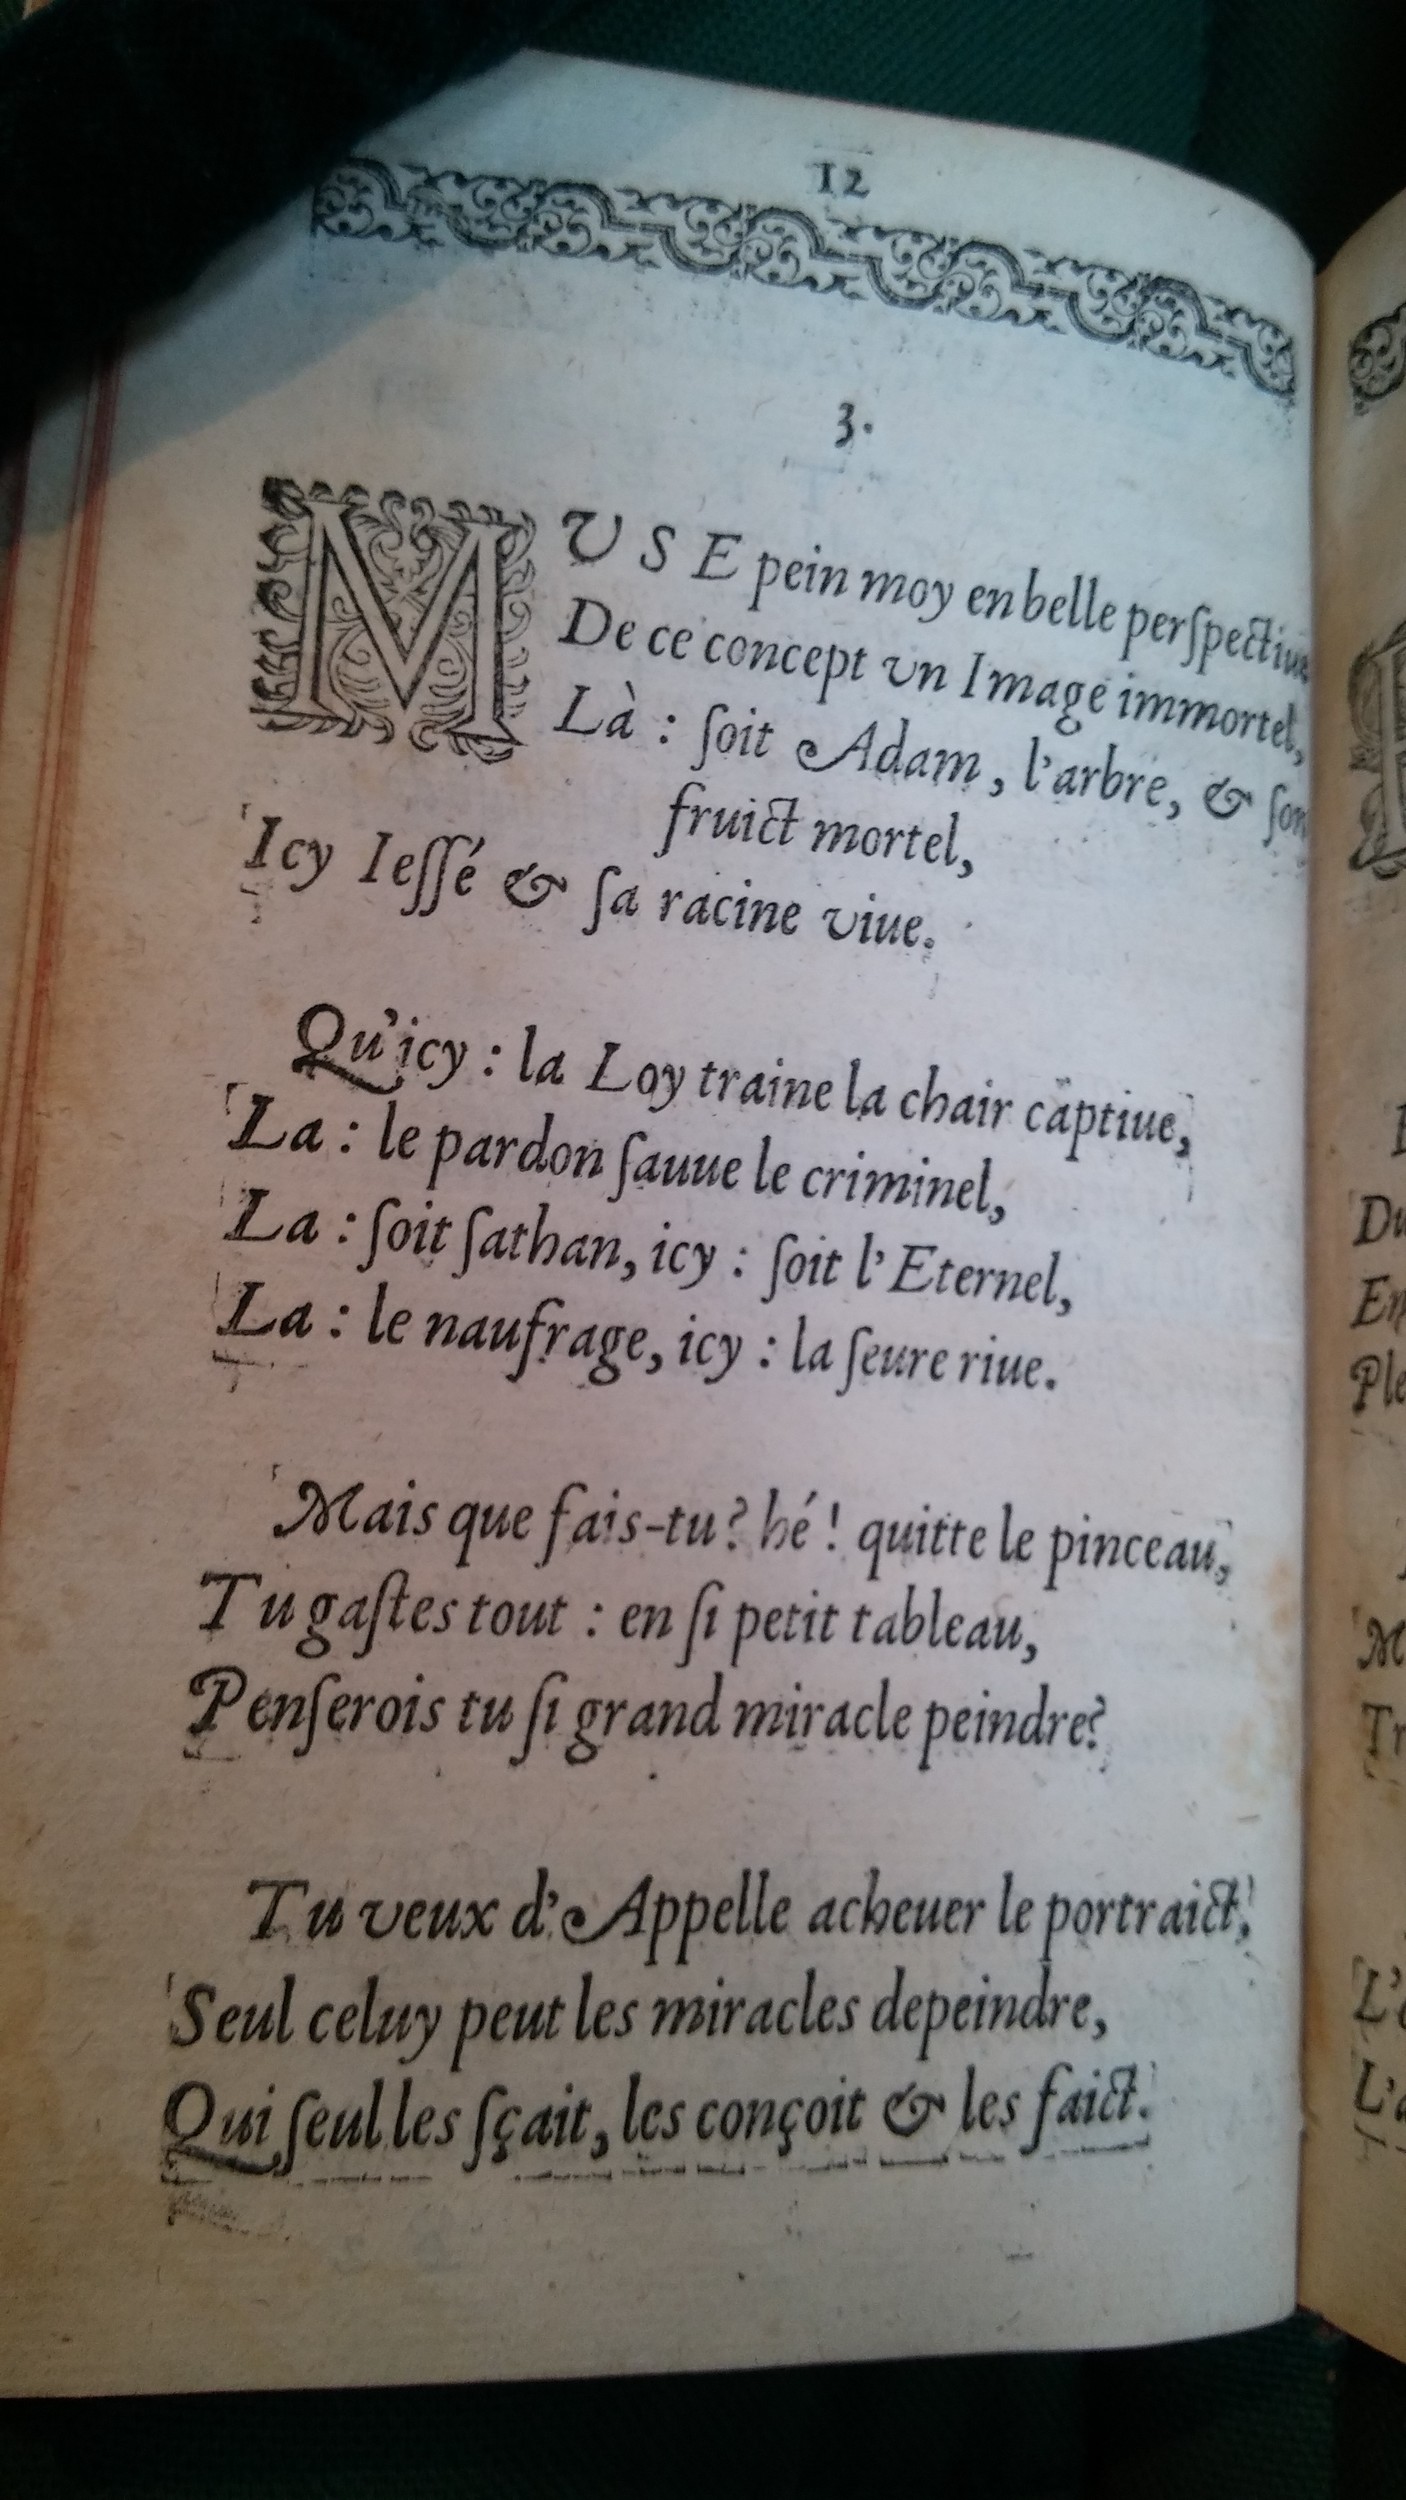 12
3.
MUSE pein moy en belle perſpectiue
De ce concept vn Image immortel,
Là : ſoit Adam, l'arbre, & ſon
fruict mortel,
Icy Ieſſé & ſa racine viue.
Qu'icy : la Loy traine la chair captiue,
La : le pardon ſauue le criminel,
La : ſoit ſathan, icy : ſoit l'Eternel,
La : le naufrage, icy : la ſeure riue.
Mais que fais-tu? hé! quitte le pinceau,
Tu gaſtes tout : en ſi petit tableau,
Penſerois tu ſi grand miracle peindre?
Tu veux d'Appelle acheuer le portraict,
Seul celuy peut les miracles depeindre,
Qui ſeul les ſçait, les conçoit & les faict.
Du
Ple